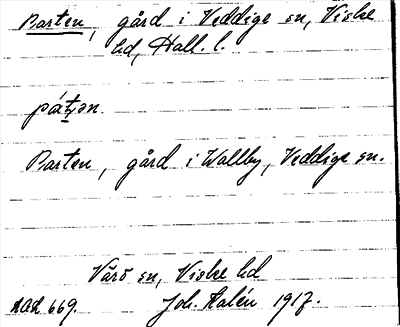 Barten, gård i Veddige sn, Viske
hd, Hall. l.
pǻt̬ən.
Barten, gård i Wallby, Veddige sn.
Värö sn, Viske hd
AOH 669. Joh. Kalén 1917.